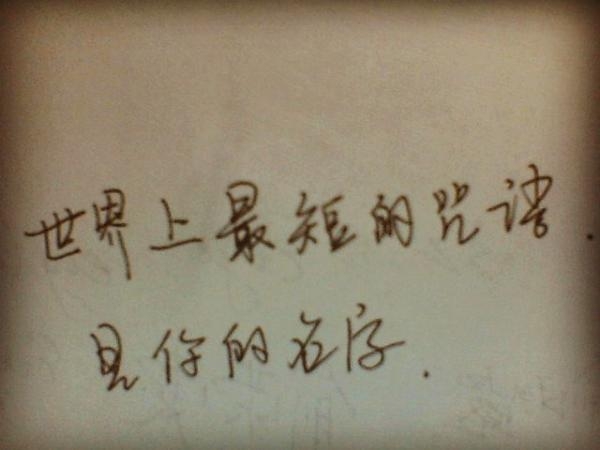 世界上最短的咒语.
是你的名字.